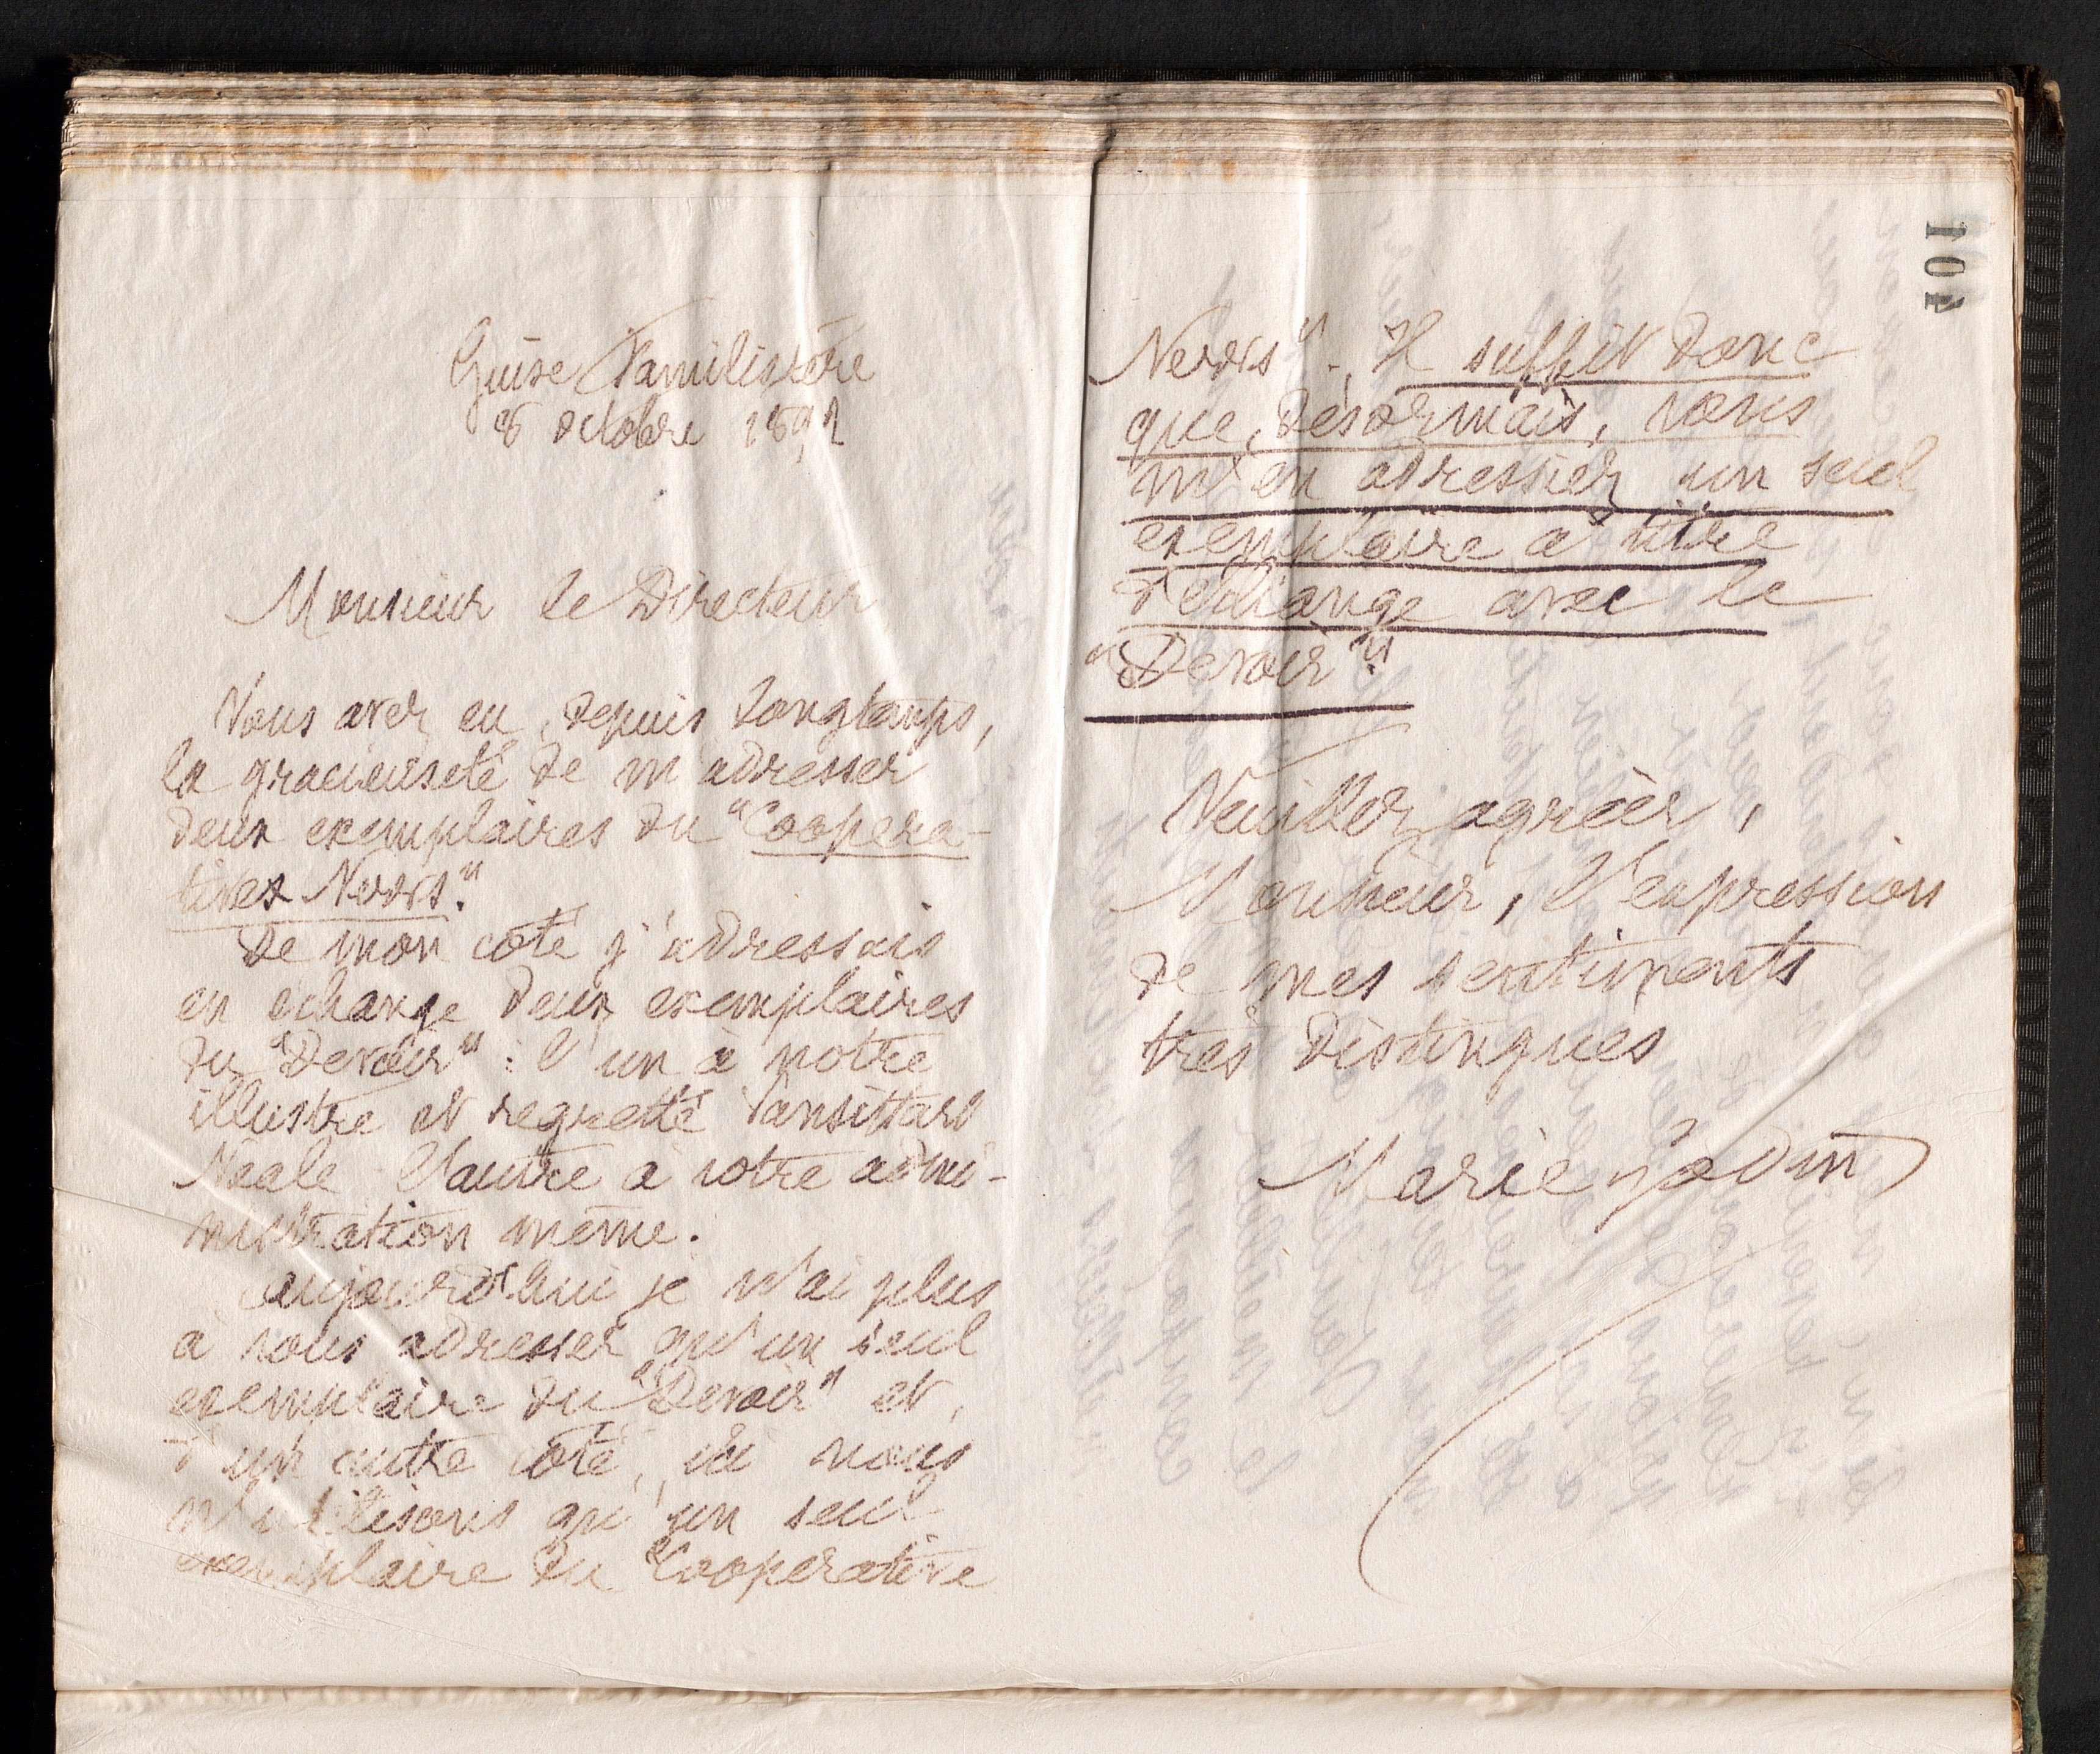 Guise Familistère
8 octobre 1892
Monsieur le Directeur
Vous avez eu, depuis longtemps,
la gracieuseté de m'adresser
deux exemplaires du "Coopera-
tives News".
De mon côté j'adressais
en échange deux exemplaires
du "Devoir" : l'un à notre
illustre et regretté Vansittart
Neale l'autre à votre admi-
nistration même.
aujourd'hui je n'ai plus
à vous adresser qu'un seul
exemplaire du "Devoir" et,
d'un autre côté, ici nous
n'utilisons qu'un seul
exemplaire du "Cooperative
News". Il suffit donc
que, désormais, vous
m'en adressiez un seul
exemplaire à titre
d'échange avec le
"Devoir".
Veuillez agréer,
Monsieur, l'expression
de mes sentiments
très distingués
Marie Godin
101